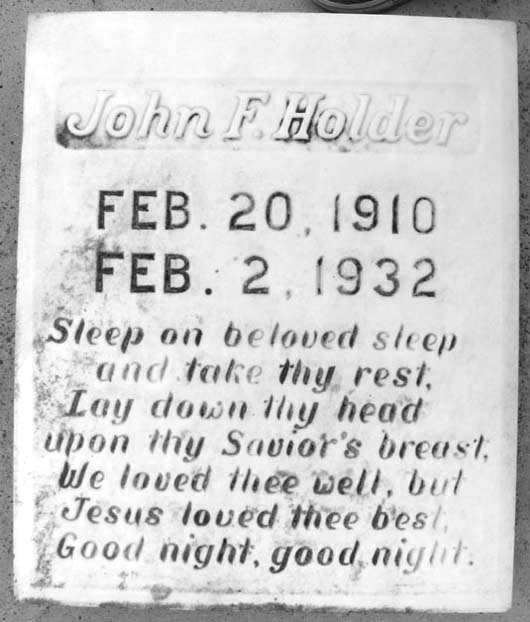 John F. Holder
FEB. 20, 1910
FEB. 2, 1932
Sleep on beloved sleep
and take thy rest,
Lay down thy head
upon thy Savior's breast,
We loved thee well, but
Jesus loved thee best,
Good night, good night.